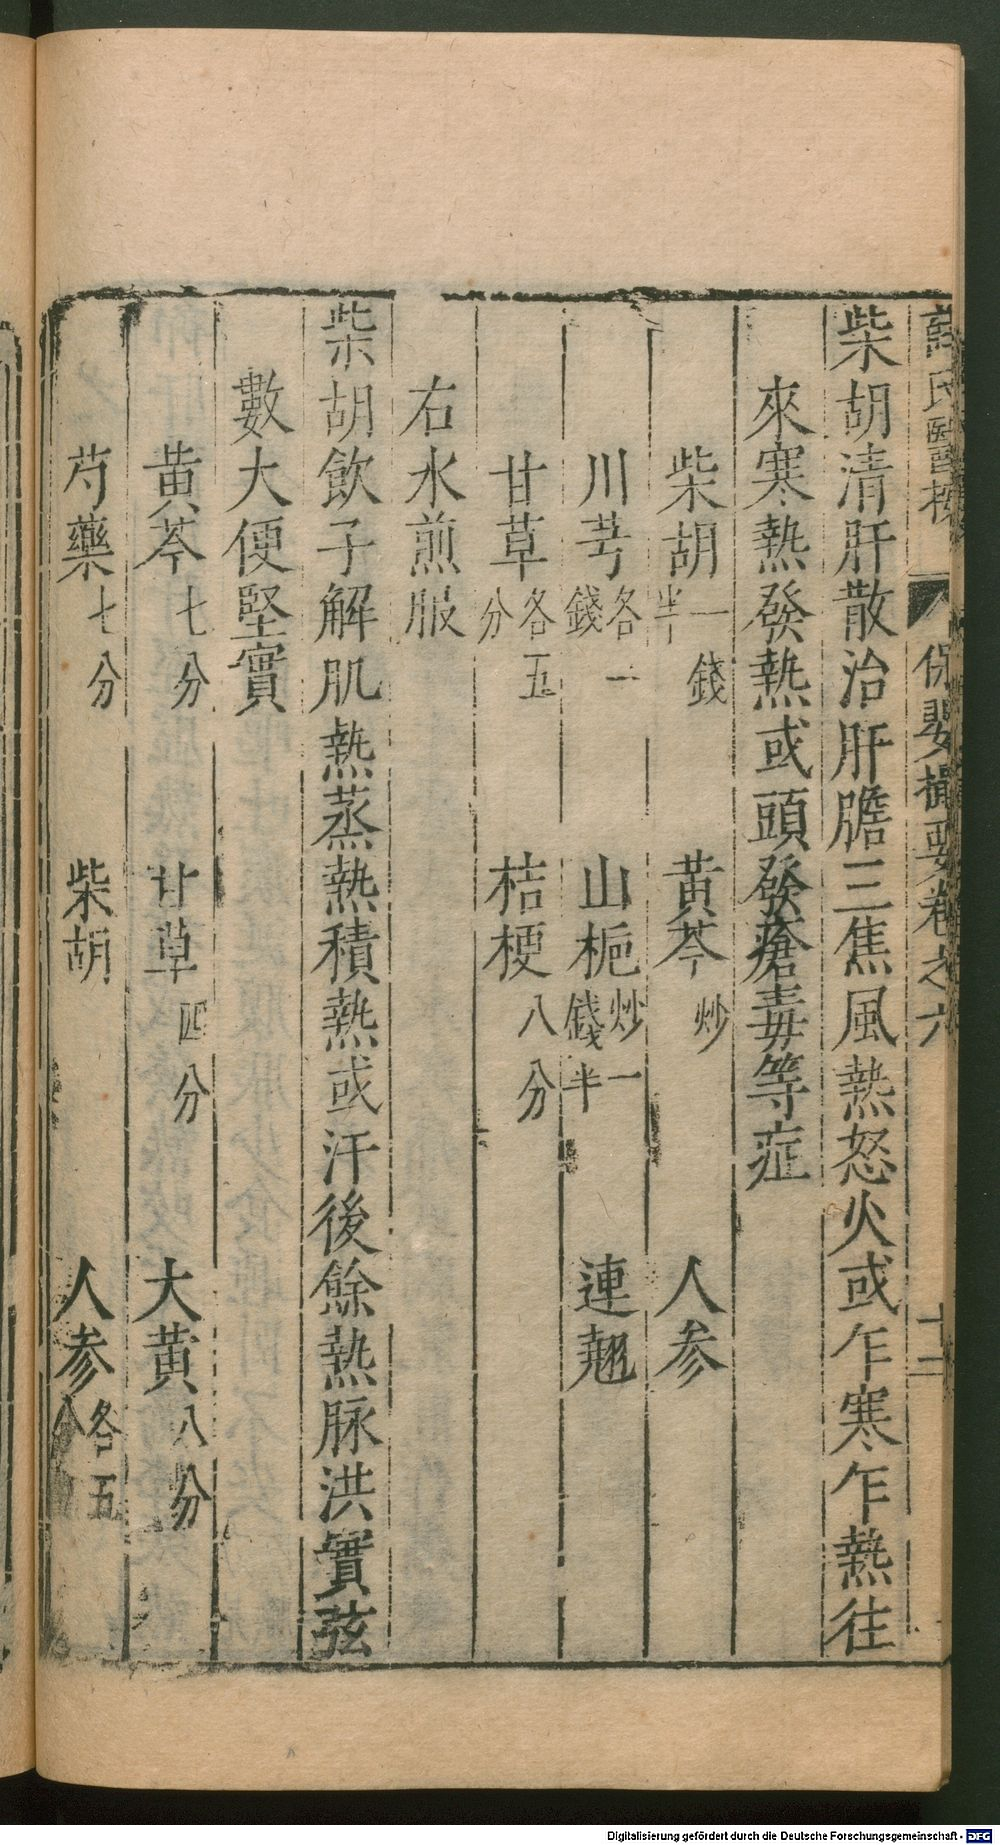 薛氏醫按　保嬰撮要卷之六　十二
柴胡清肝散治肝膽三焦風熱怒火或乍寒乍熱往
來寒熱發熱或頭發瘡毒等症
柴胡一錢半　黄芩炒　人参
川芎各一錢　山梔炒一錢半　連翹
甘草各五分　桔梗八分
右水煎服
柴胡飲子解肌熱蒸熱積熱或汗後餘熱脉洪實弦
數大便堅實
黄芩七分　甘草四分　大黄八分
芍藥七分　柴胡　人参各五分
Digitalisierung gefördert durch die Deutsche Forschungsgemeinschaft - DFG